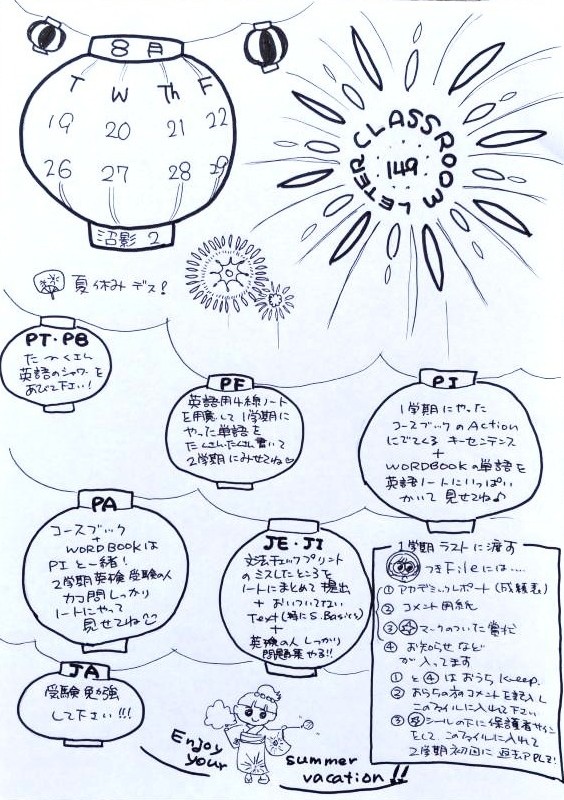 8月
T W Th F
19 20 21 22
26 27 28 29
沼影 2
CLASSROOM LETER
149
夏休みデス!
PT・PB
た〜くさん
英語のシャワーを
あびて下さい!
PF
英語用4線ノート
を用意して1学期に
やった単語を
たくさんたくさん書いて
2学期にみせてね♡
PI
1学期にやった
コースブックのAction
にでてくる キーセンテンス
+
WORDBOOKの単語を
英語ノートにいっぱい
かいて見せてね♪
PA
コースブック
+
WORDBOOKは
PIと一緒!
2学期英検受験の人
カコ問しっかり
ノートにやって
見せてね
JE・JI
文法チェックプリント
のミスしたところを
ノートにまとめて提出
+ おいついてない
Text(特にS.Basics)
+
英検の人しっかり
問題集やる!!
JA
受験勉強
して下さい!!!
1学期ラストに渡す
つきFileには....
① アカデミックレポート(成績表)
② コメント用紙
③ マークのついた
④ お知らせなど
が入ってます
①と④はおうちKeep.
② おうちの方コメントを記入し
このファイルに入れて下さい
③ シールの下に保護者サイン
をして このファイルに入れて
2学期初回に返却PLZ!
Enjoy
your
summer
vacation!!